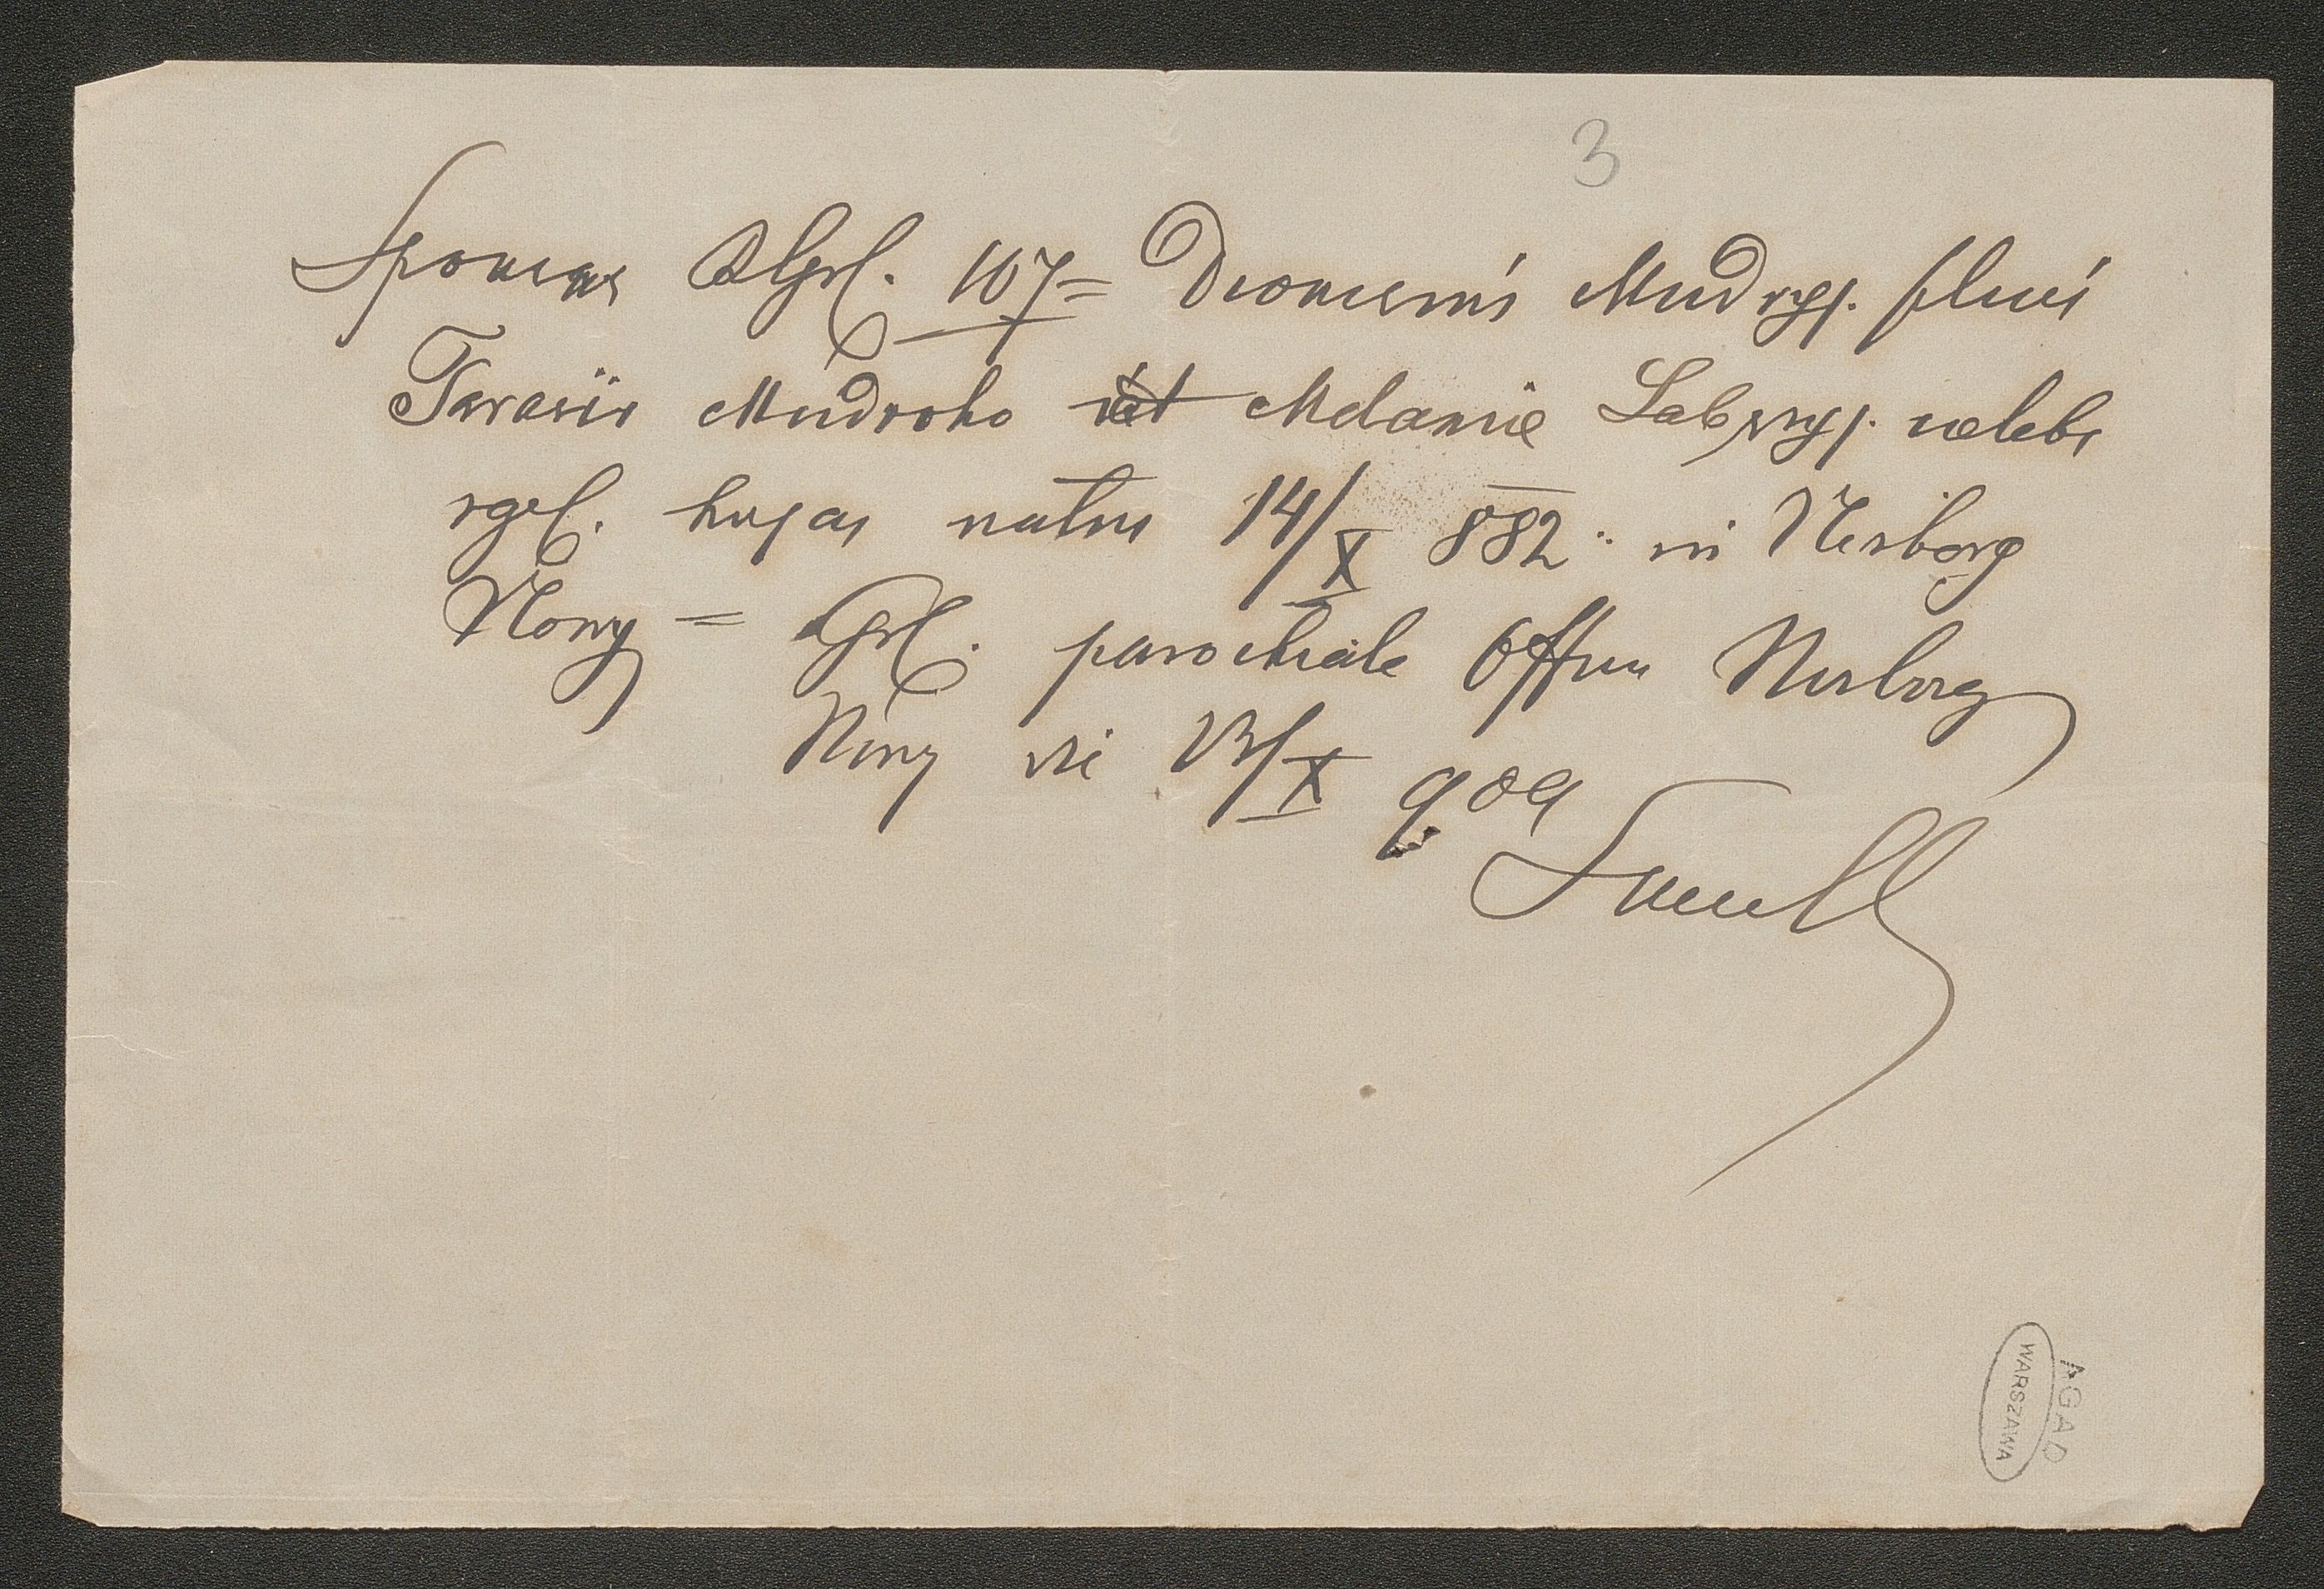 3
Sponsus Rgrl. 107 = Dionisius Mudryj. filius
Tarasii Mudroho et Melanie Labryj. celebs
rgrl. hujas natus 14/X 882 in Nesterg
Nowy = Rgrl. parochiale Offm
Nowy die 13/X 909
AGAD
WARSZAWA